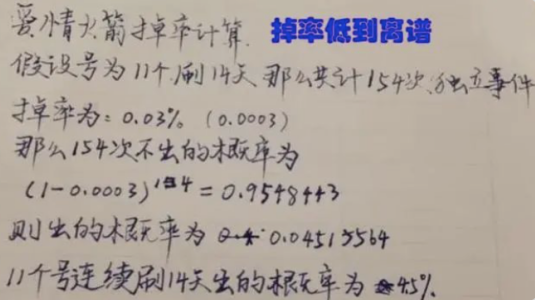 爱情火箭掉率计算.
掉率低到离谱
假设号为11个.刷14天 那么共计154次独立事件
掉率为: 0.03% (0.0003)
那么154次不出的概率为
(1-0.0003)154 = 0.9548443
则出的概率为 0.04515564
11个号连续刷14天出的概率为 4.5%.